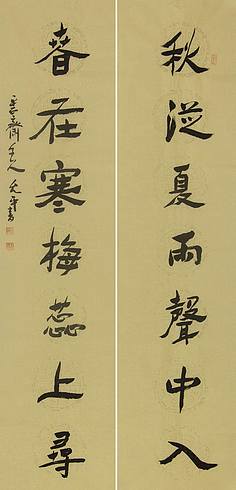 秋從夏雨聲中入
春在寒梅蕊上尋